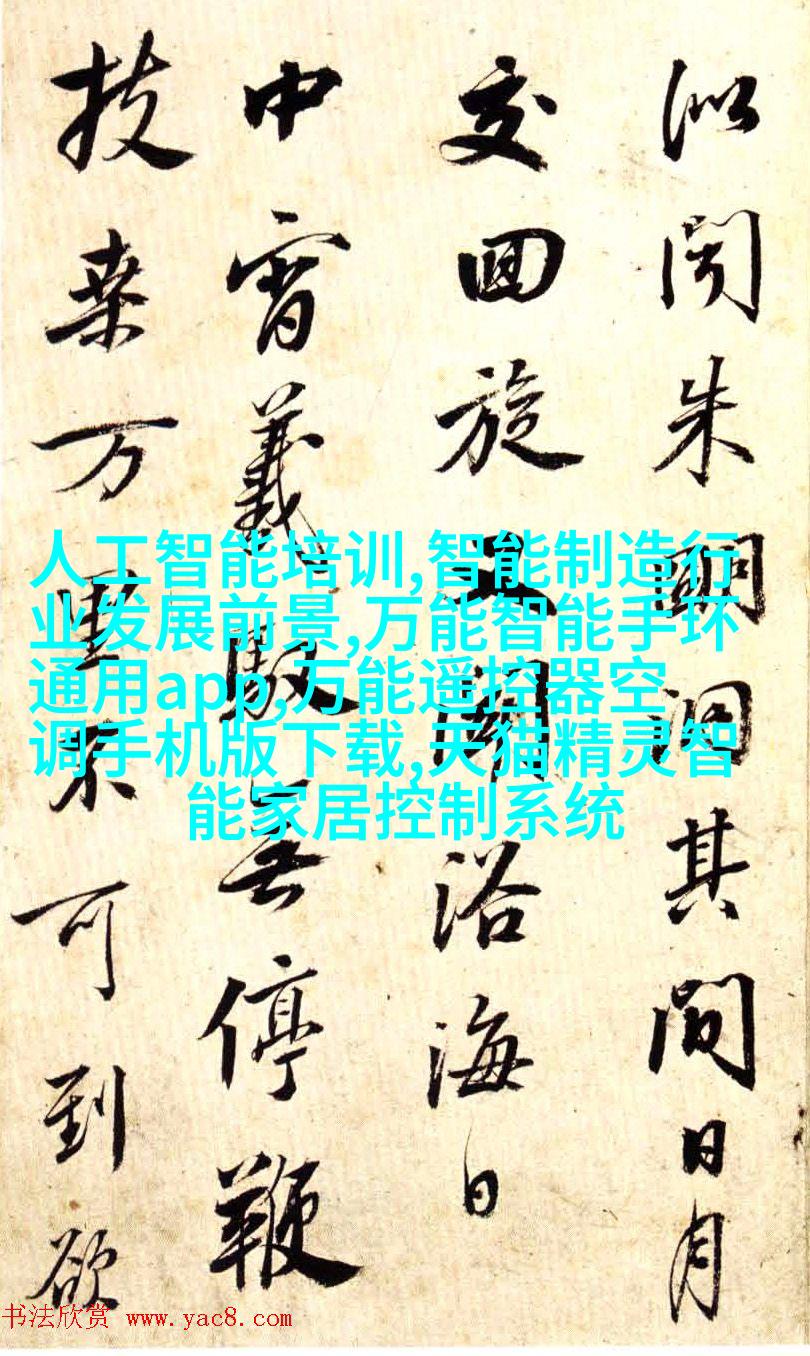 似聞朱明洞其間日月
交回旋又聞浴海日
中宵羲馭無停鞭
扶桑万里不可到欲
人工智能培训,智能制造行
业发展前景,万能智能手环
通用app,万能遥控器空
调手机版下载,天猫精灵智
能家居控制系统
书法欣赏 www.yac8.com